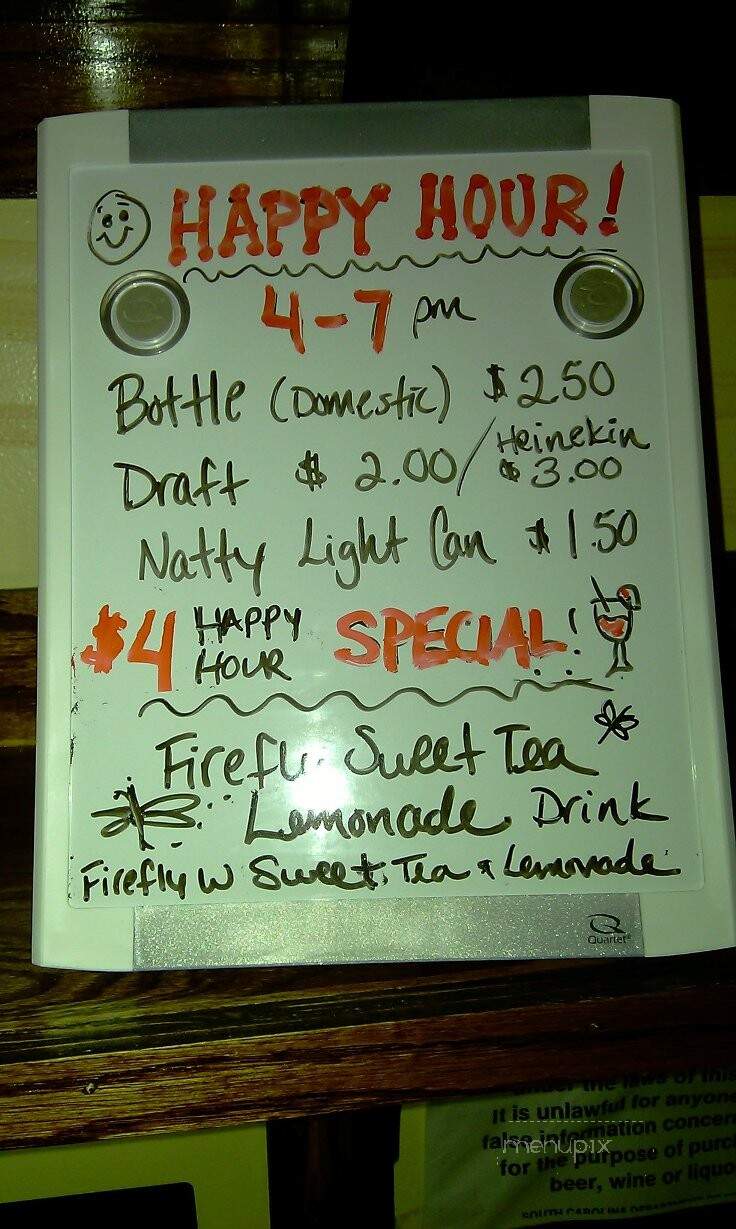 HAPPY HOUR!
4-7 pm
Bottle (Domestic) $2.50
Draft $2.00/Heinekin $3.00
Natty Light Can $1.50
$4 HAPPY HOUR SPECIAL!
Firefly Sweet Tea
Lemonade Drink
Firefly W Sweet Tea & Lemonade
Quartet®
under the laws of this
It is unlawful for anyone
false information concer
for the purpose of purc
beer, wine or liquo
SOUTH CAROLINA
menupix